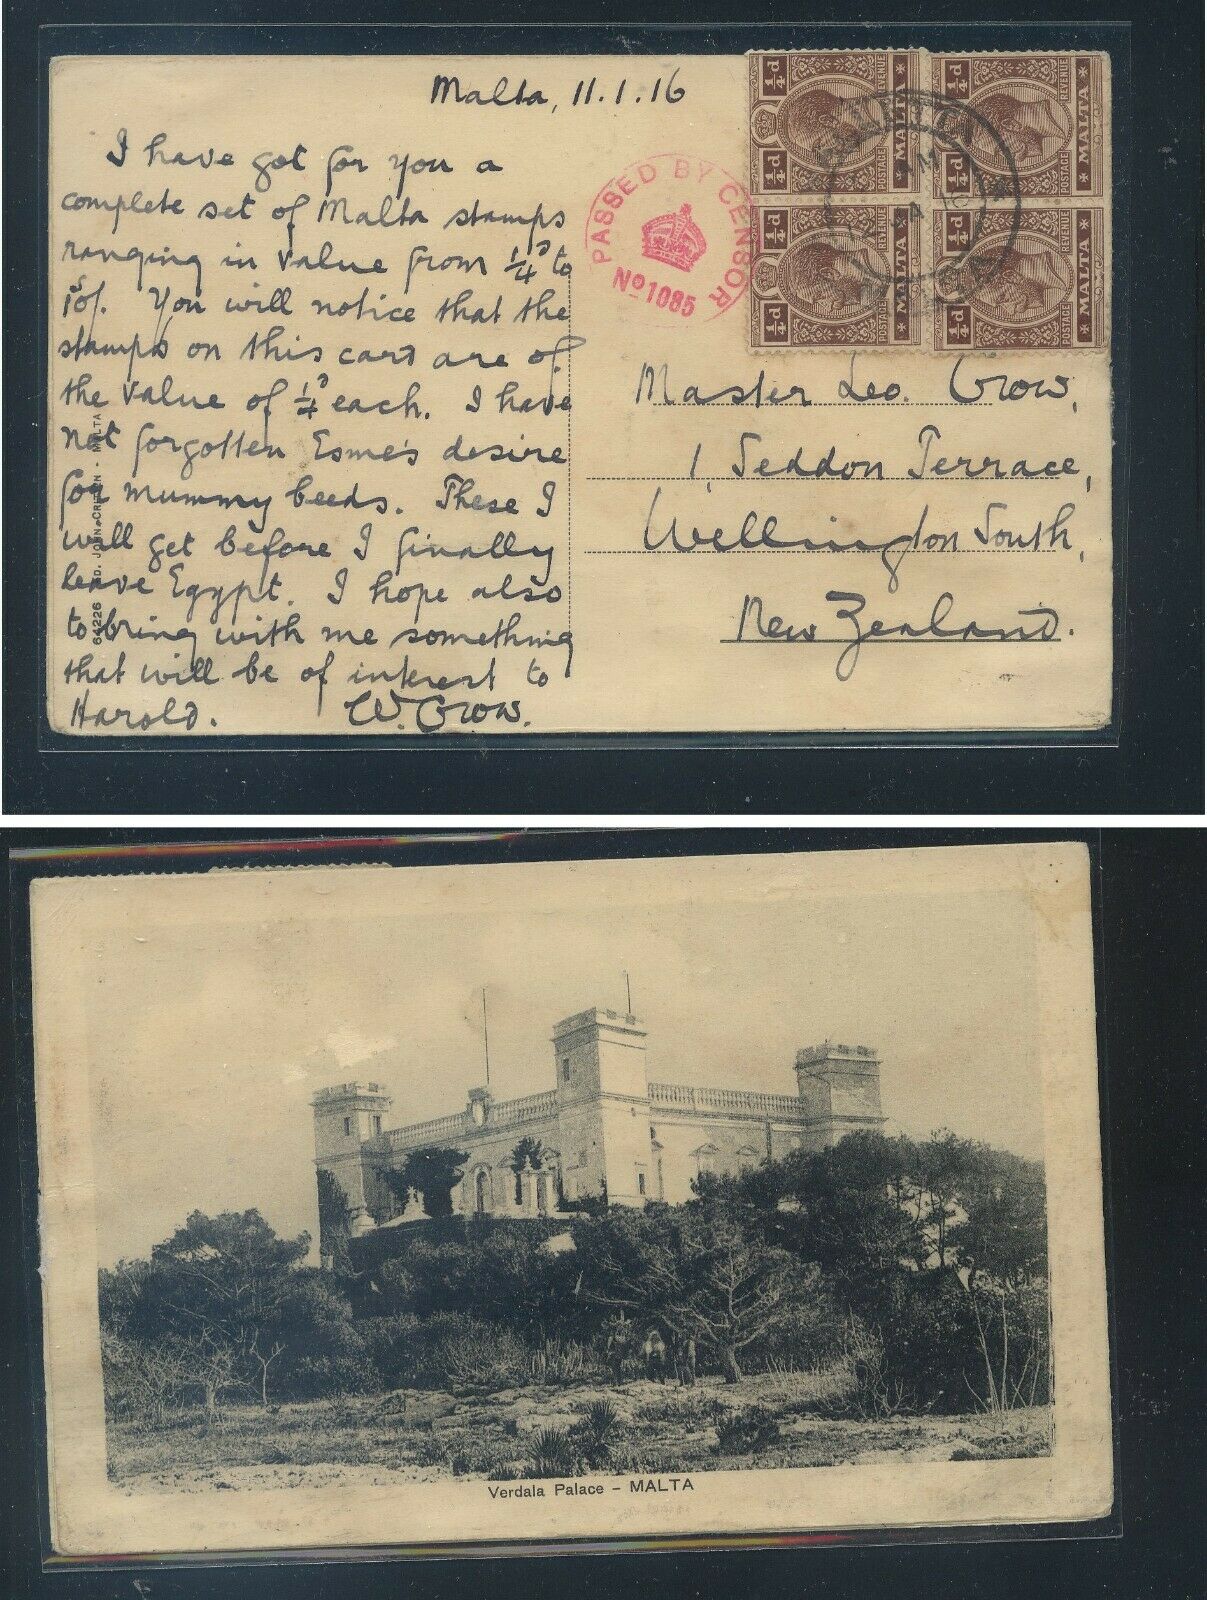 Malta, 11.1.16
I have got for you a
complete set of Malta stamps
ranging in value from ¼ᴰ to
You will notice that the
stamps on this card are of
the value of ¼ᴰ each. I have
not forgotten Esme's desire
for mummy beeds. These I
will get before I finally
leave Egypt. I hope also
to bring with me something
that will be of interest to
Harold. W. Crow.
64226 JOHN CRITIEN - MALTA
PASSED BY CENSOR
Nº 1085
¼d ¼d POSTAGE REVENUE MALTA
¼d ¼d POSTAGE REVENUE MALTA
¼d ¼d POSTAGE MALTA
¼d ¼d POSTAGE REVENUE MALTA
VALLETTA
AM
JA 16
MALTA
Master Leo. Crow,
1, Seddon Terrace,
Wellington South,
New Zealand.
Verdala Palace - MALTA